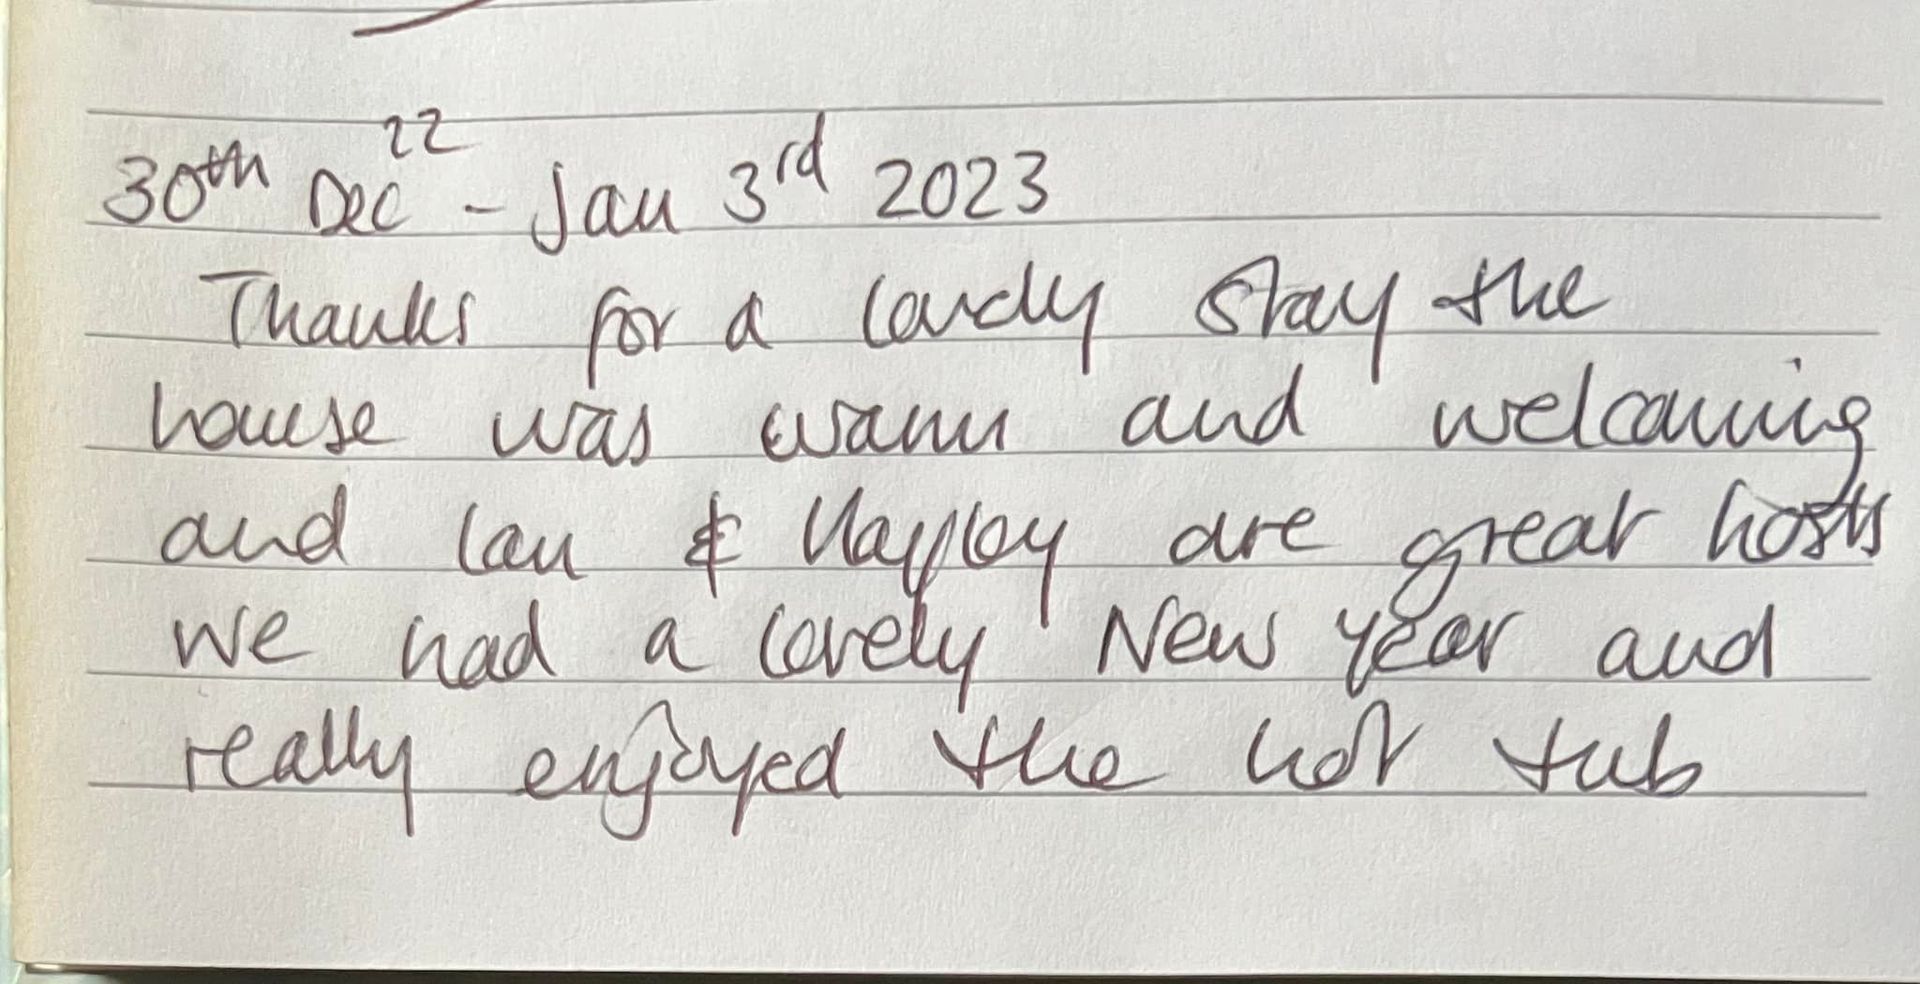 30th Dec 22 - Jan 3rd 2023
Thanks for a lovely stay the
house was warm and welcoming
and Ian & are great hosts
we had a lovely New Year and
really enjoyed the hot tub